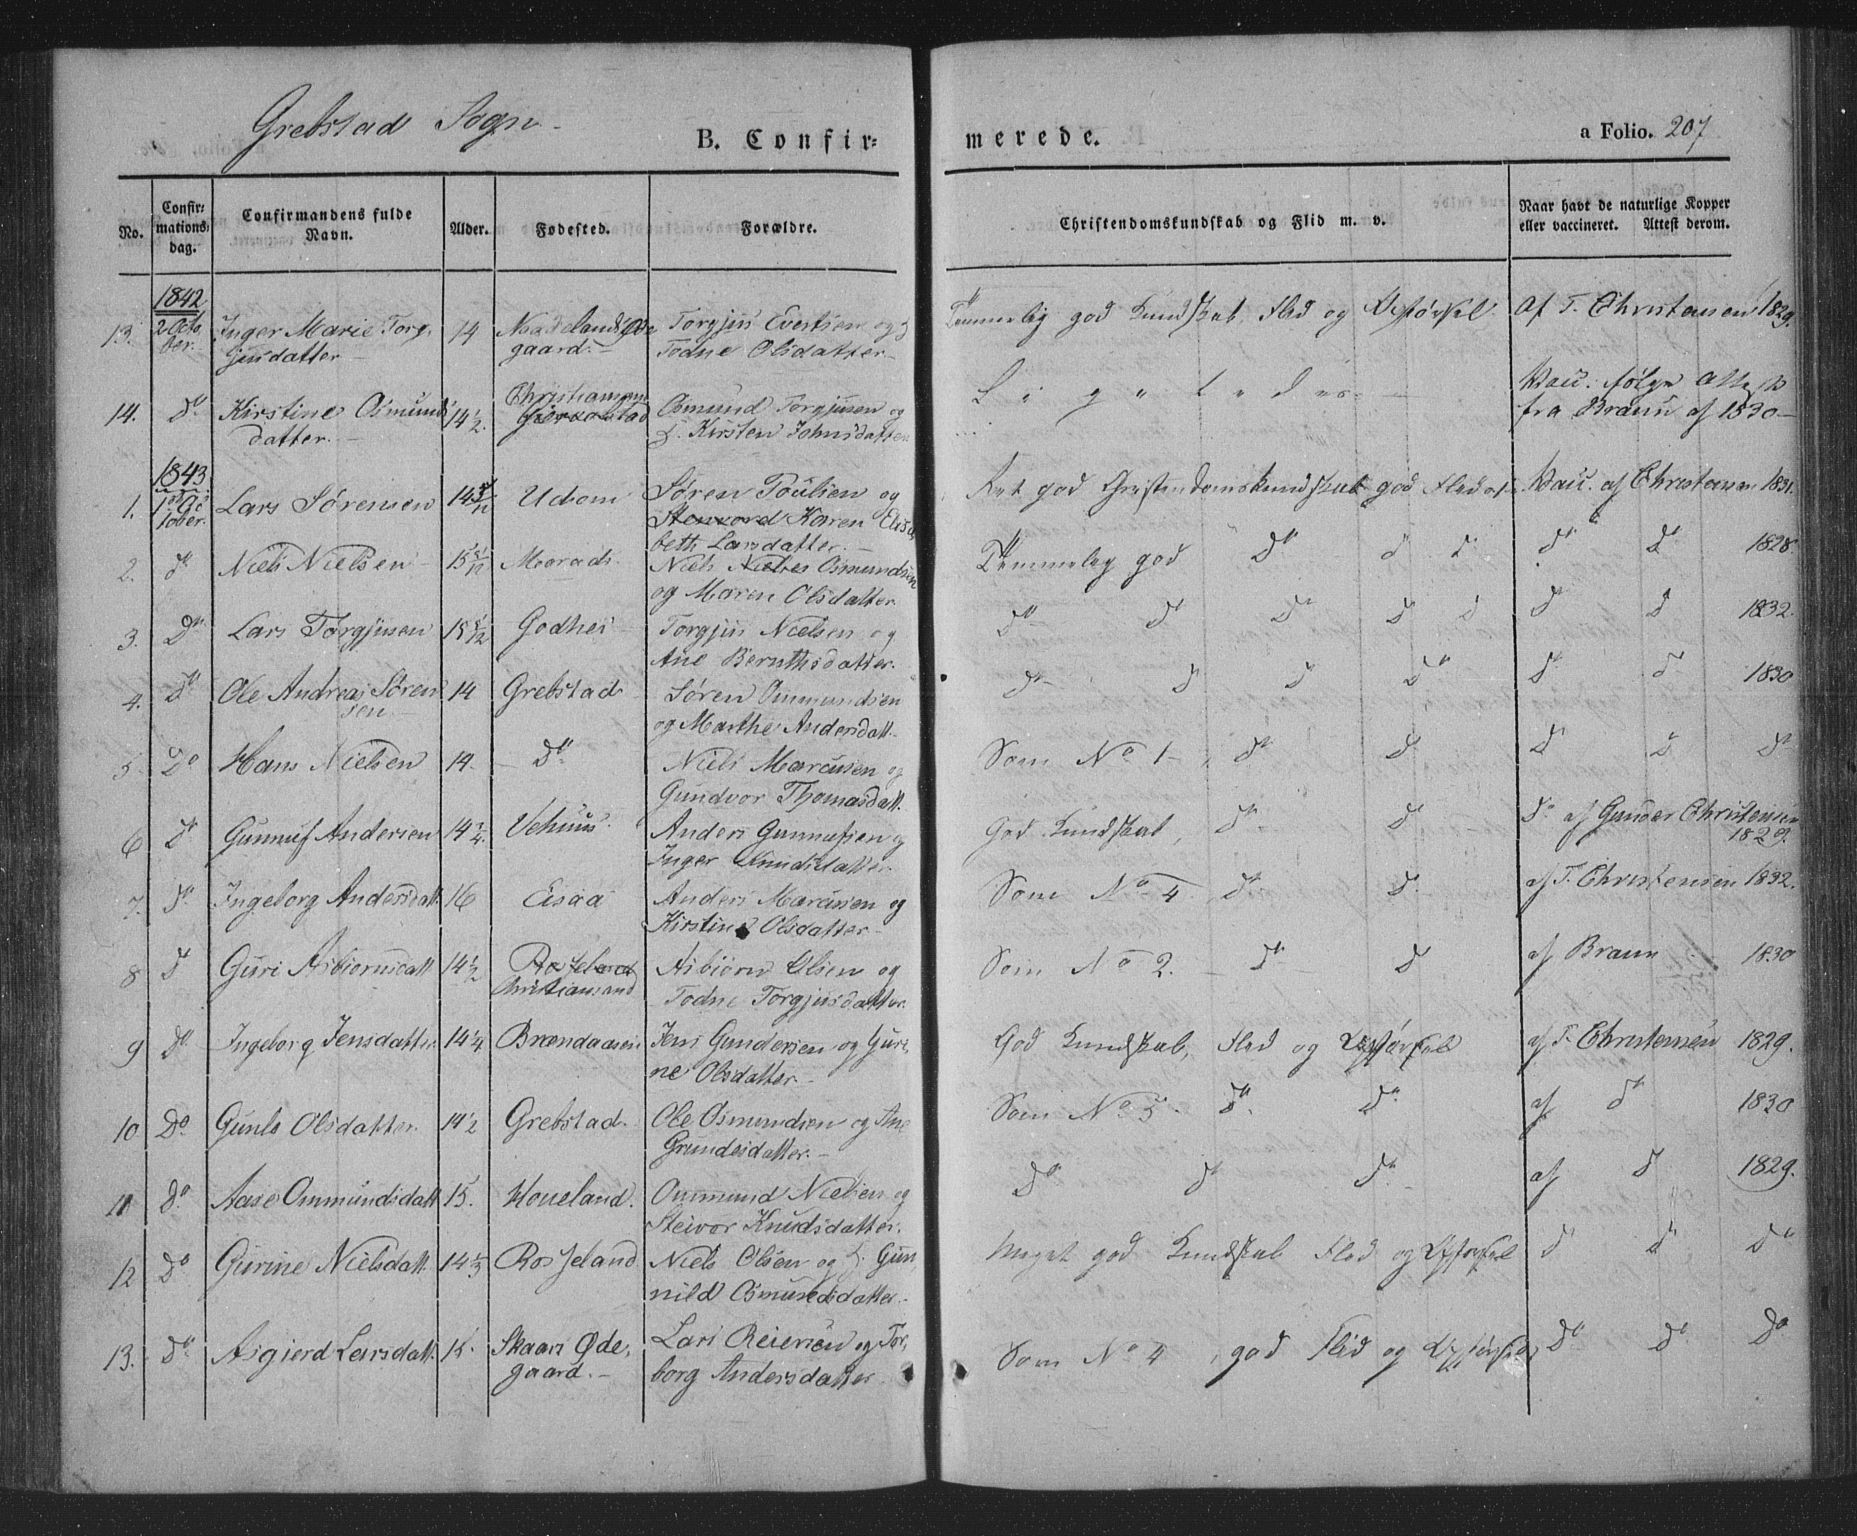 Grebstad Sogn
B. Confir=
merede.
a Folio. 207
No.
Confir=
mations
dag.
Confirmandens fulde
Navn.
Alder.
Fødested.
Forældre.
Christendomskundskab og Flid m. v.
Naar havt de naturlige Kopper
eller vaccineret. Attest derom.
1842
13. 2 Octo Inger Marie Torg, 14 Torgjus Evertsen og Temmelig god Kundskab Flid og Opførsel af T. Christensen 1829.
ber. jusdatter gaard. Todne Olsdatter
14. Do Kirstine Osmunds 14½ Osmund Torgjusen og Ligeledes Vacc. følge Attest
datter. Kirsten Johnsdatter fra Braun af 1830
1843
1. Lars Sørensen 14 Udom Søren Poulsen og Ret god Christendomskundskab god Flid Vacc. af Christensen 1831.
tober. Karen Elisa
beth Larsdatter.
2. Do Niels Nielsen 15 Niels Osmundsen Temmelig god Do Do Do Do Do 1828.
og Maren Olsdatter.
3. Do Lars Torgjusen 15 Godhei Torgjus Nielsen og Do Do Do Do Do Do Do 1832.
Ane Bernthsdatter.
4. Do Ole Andreas Søren 14 Grebstad Søren Ommundsen Do Do Do Do Do Do 1830
sen og Marthe Andersdatt.
5 Do Hans Nielsen 14 Do Niels Marcusen og Som No 1 Do Do Do Do Do
Gundvor Thomasdatt.
6 Do Gunnuf Andersen 14¼ Vehuus Anders Gunnufsen og God Kundskab, Do Do Do af Gunder Christensen
Inger datter. 1829.
7. Do Ingeborg Andersdatt 16 Eisaa Anders Marcusen og Som No 4 Do Do af T. Christensen 1832.
Kirstine Olsdatter
8 Do Guri Asbiornsdatt 14½ Rosseland Asbiørn Olsen og Som No 2. Do Do af Braun 1830
Christiansand Todne Torgjusdatter.
9 Do Ingeborg Jensdatter 14¼ Brændaasen Jens Gundersen og Guri, God Kundskab, Flid og Opførsel af T. Christensen 1829.
ne Olsdatter
10 Do Gunlo Olsdatter. 14½ Grebstad. Ole Osmundsen og Ane Som No 5. Do Do af Do 1830
Grundesdatter.
11 Do Aase Ommundsdatt 15. Houeland. Ommund Nielsen og Do Do Do af Do 1829.
Steivor Knudsdatter.
12 Do Gurine Nielsdatt. 14⅓ Rosseland Niels Olsen og Gun, Meget god Kundskab Flid og Opførsel Do Do Do
nild Osmundsdatter.
13. Do Asgierd Larsdatt. 15. Skaars Øde, Lars Reiersen og Tor, Som No 4, god Flid og Opførsel, Do Do Do
gaard. borg Andersdatter